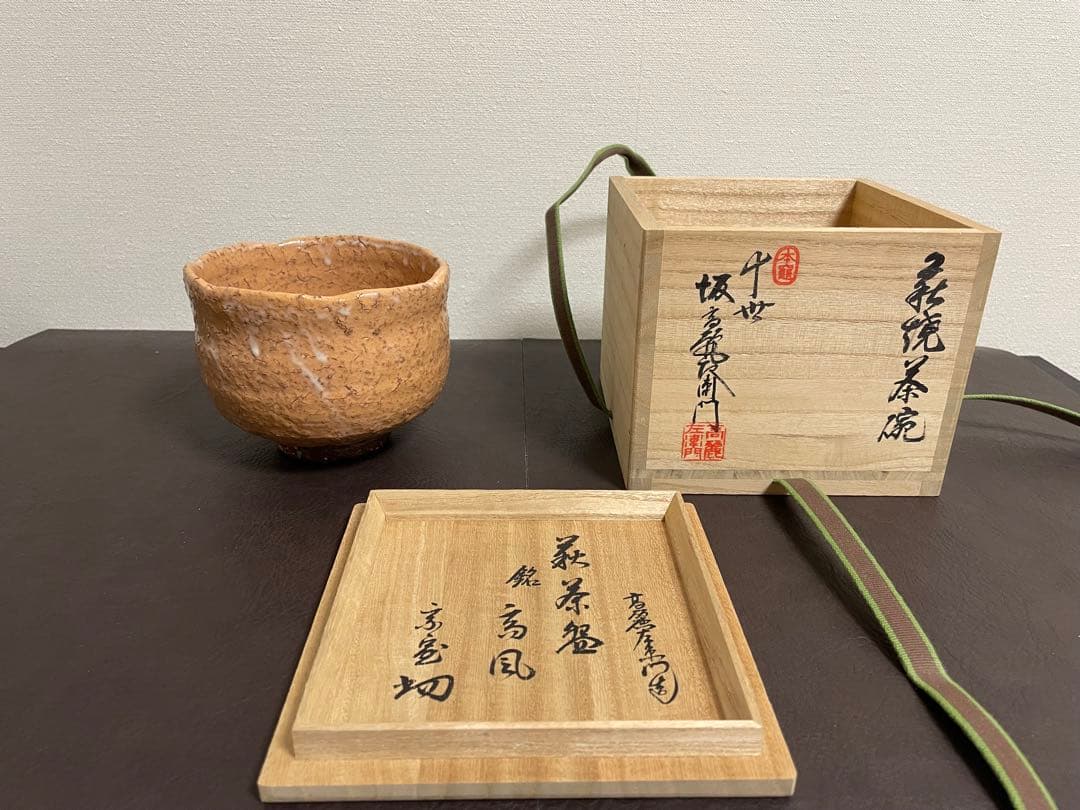 萩焼茶碗
本窯
十世
坂高麗左衛門
高麗左衛門
高麗左衛門造
萩茶盌
銘
高風